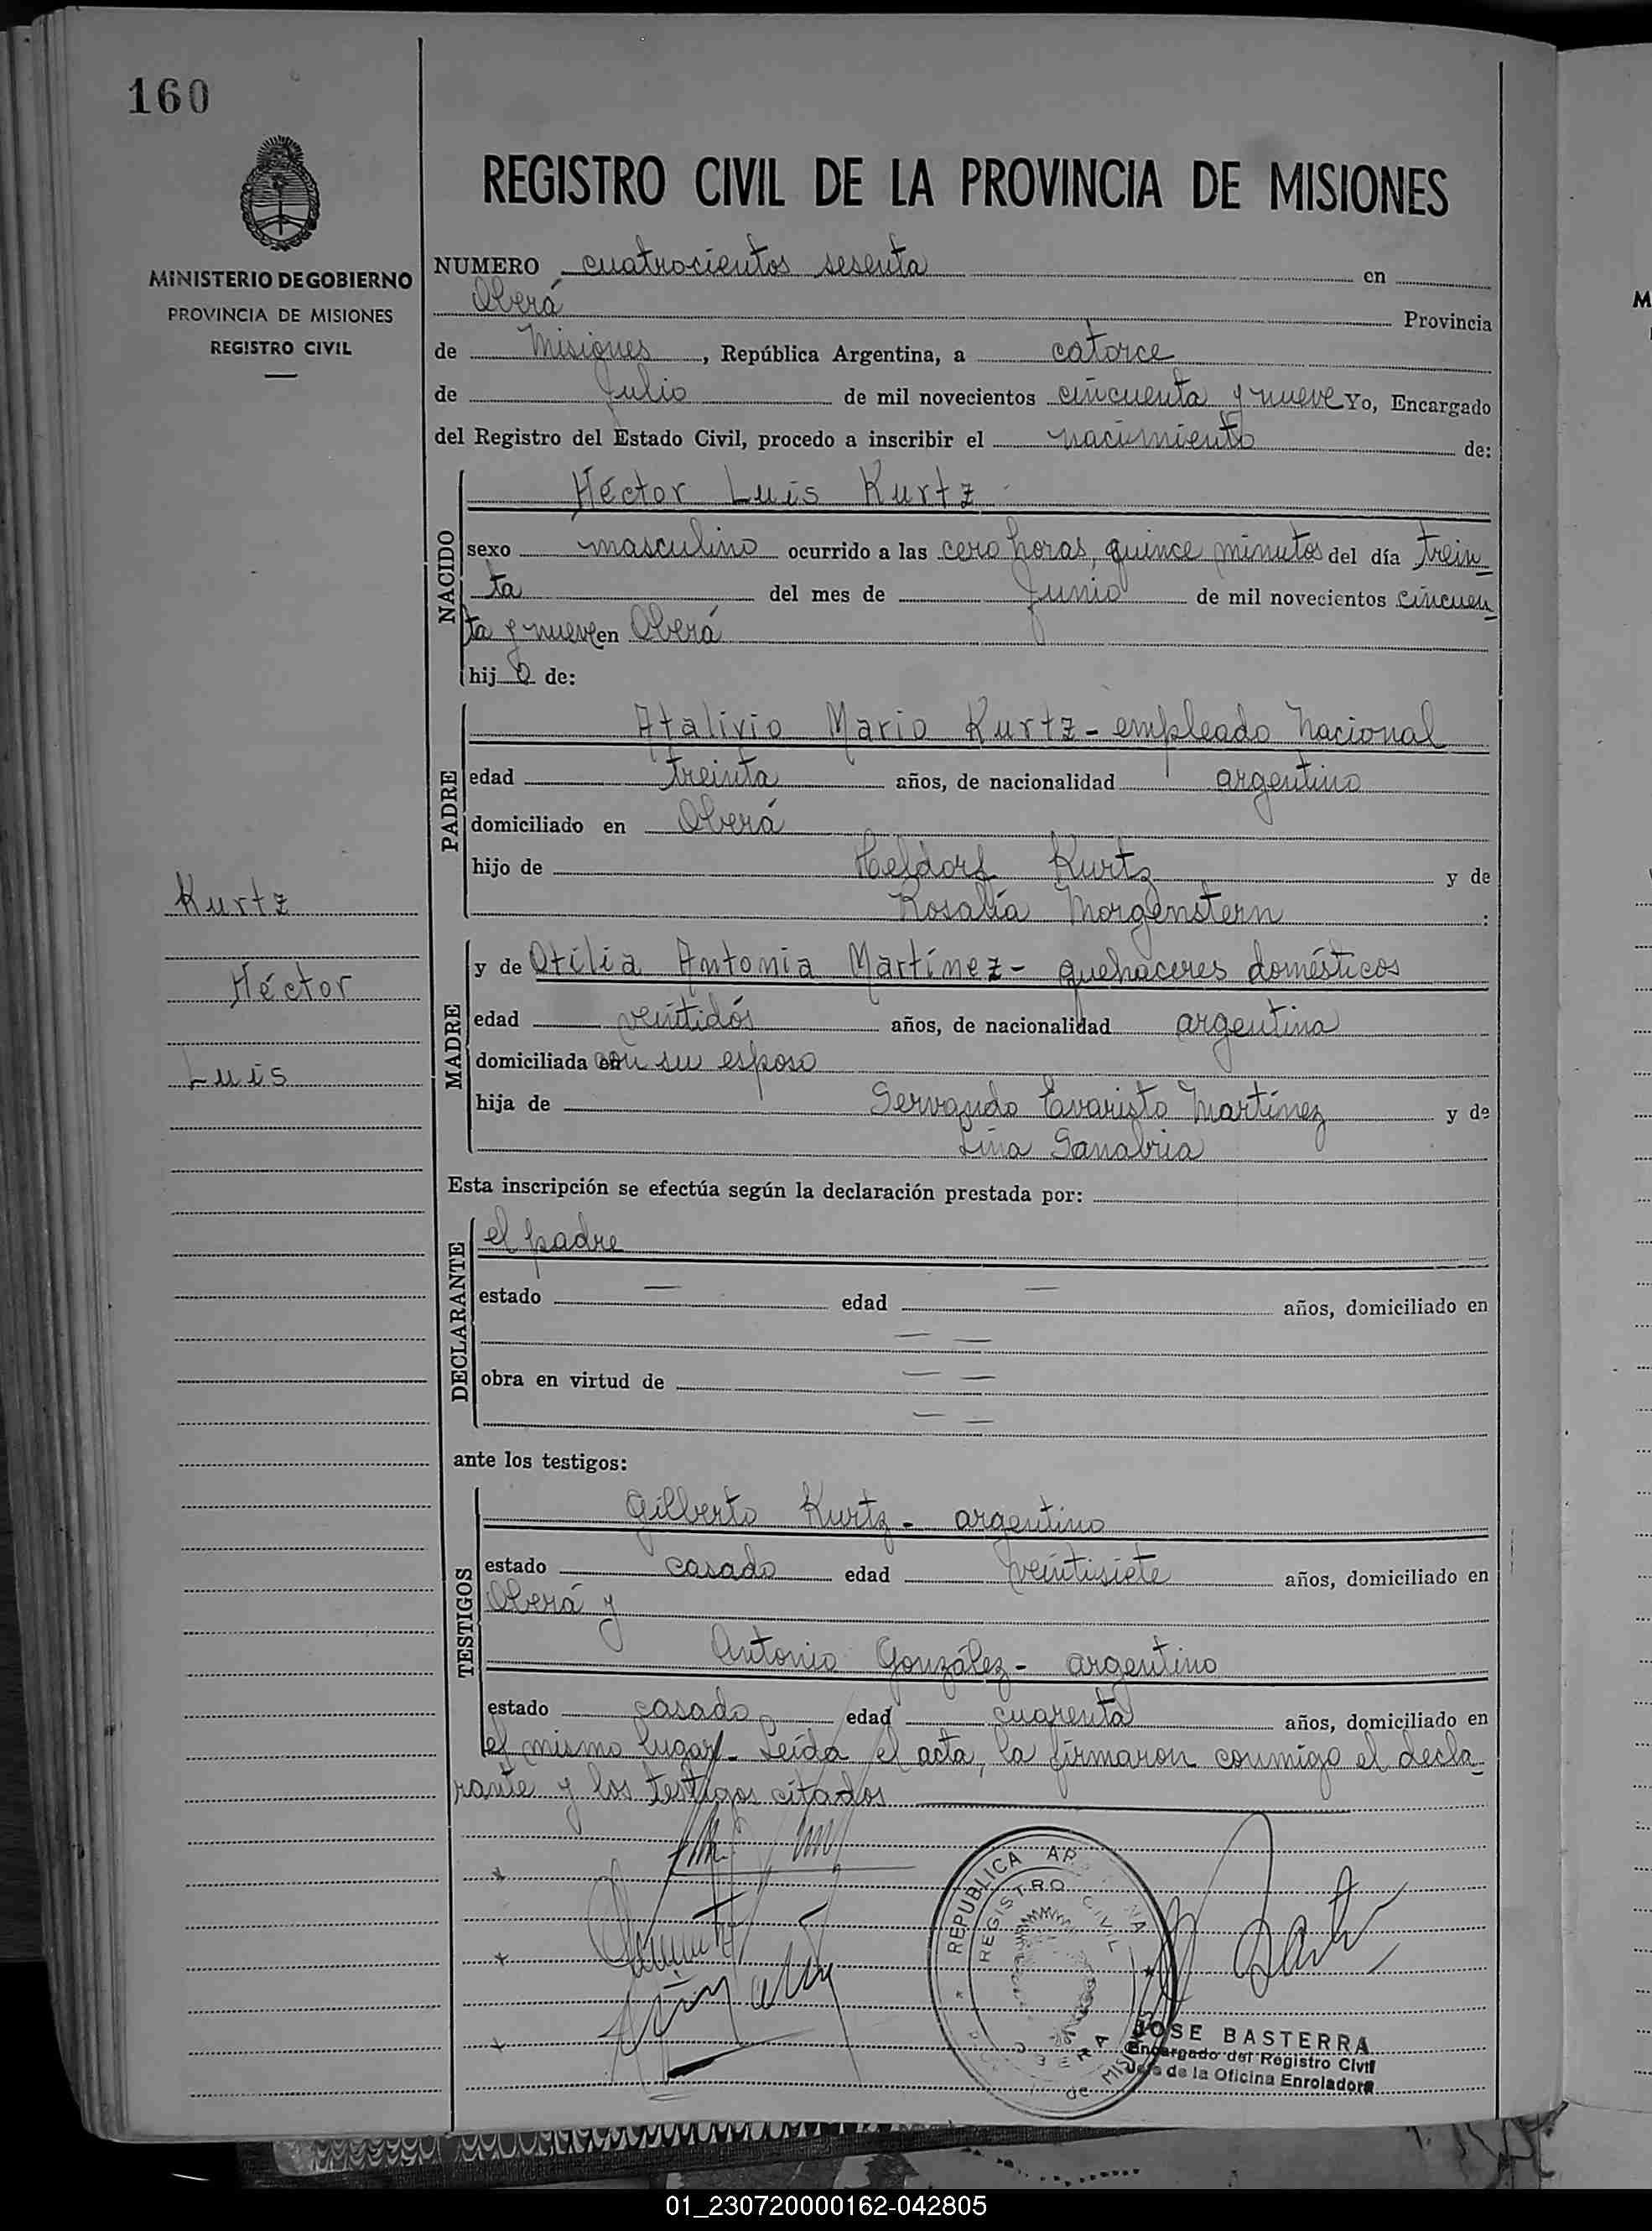 160
MINISTERIO DE GOBIERNO
PROVINCIA DE MISIONES
REGISTRO CIVIL
REGISTRO CIVIL DE LA PROVINCIA DE MISIONES
NUMERO cuatrocientos sesenta en
Oberá Provincia
de Misiones, República Argentina, a catorce
de Julio de mil novecientos cincuenta y nueve Yo, Encargado
del Registro del Estado Civil, procedo a inscribir el nacimiento de:
NACIDO
Héctor Luis Kurtz
sexo masculino ocurrido a las cero horas, quince minutos del día trein_
ta del mes de Junio de mil novecientos cincuen_
ta y nueve en Oberá
hijo de:
PADRE
Atalivio Mario Kurtz - empleado nacional
edad treinta años, de nacionalidad argentino
domiciliado en Oberá
hijo de Heldorf Kurtz y de
Rosalía Morgenstern :
Kurtz
Héctor
Luis
MADRE
y de Otilia Antonia Martínez - quehaceres domésticos
edad veintidós años, de nacionalidad argentina
domiciliada con su esposo
hija de Servando Evaristo Martínez y de
Lina Sanabria
Esta inscripción se efectúa según la declaración prestada por:
DECLARANTE
el padre
estado — edad — años, domiciliado en
— —
obra en virtud de — —
— —
ante los testigos:
TESTIGOS
Gilberto Kurtz - argentino
estado casado edad veintisiete años, domiciliado en
Oberá y
Antonio González - argentino
estado casado edad cuarenta años, domiciliado en
el mismo lugar - Leída el acta, la firmaron conmigo el decla_
rante y los testigos citados
REPUBLICA
REGISTRO CIVIL
OBERA
de MISIONES
JOSE BASTERRA
Encargado del Registro Civil
Jefe de la Oficina Enroladora
01_230720000162-042805